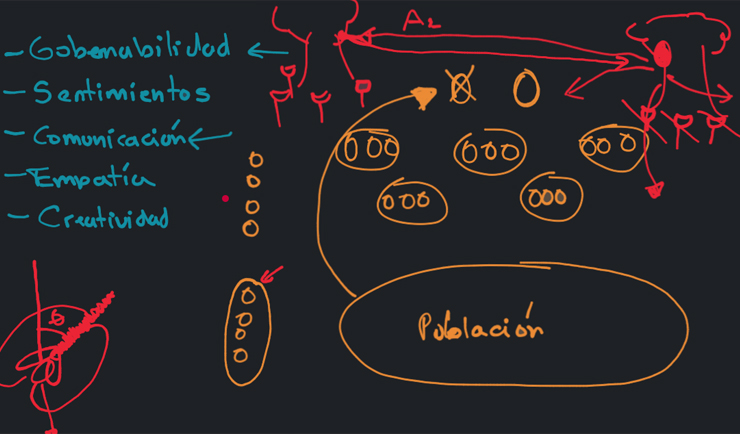 A2
- Gobernabilidad
- Sentimientos
- Comunicación
- Empatía
- Creatividad
θ
Población